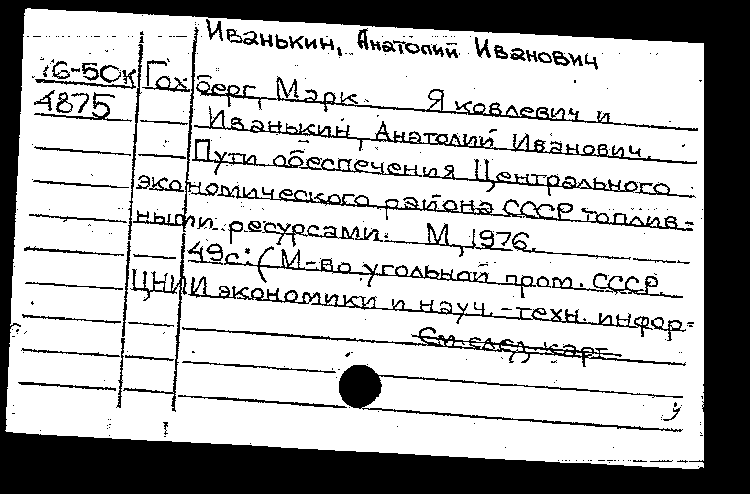 Иванькин, Анатолий Иванович
76-50к Гохберг, Марк Яковлевич и
4875 Иванькин, Анатолий Иванович.
Пути обеспечения Центрального
экономического района СССР топлив=
ными ресурсами. М., 1976.
49с. (М-во угольной пром. СССР.
ЦНИИ экономики и науч.-техн. инфор=
См. след. карт.
у